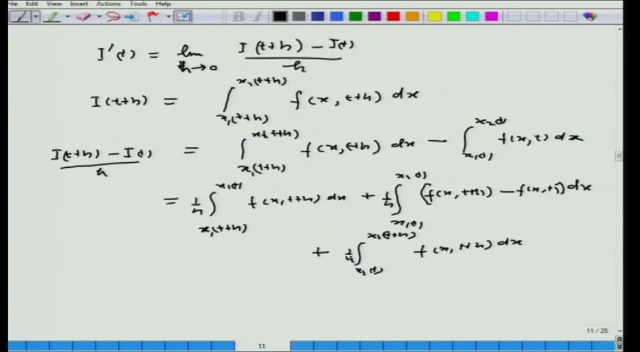 View Insert Actions Tools Help
I'(t) = lim h→0 (I(t+h) - I(t))/h
I(t+h) = ∫_{x₁(t+h)}^{x₂(t+h)} f(x, t+h) dx
(I(t+h) - I(t))/h = ∫_{x₁(t+h)}^{x₂(t+h)} f(x, t+h) dx - ∫_{x₁(t)}^{x₂(t)} f(x, t) dx
= 1/h ∫_{x₁(t+h)}^{x₁(t)} f(x, t+h) dx + 1/h ∫_{x₁(t)}^{x₂(t)} (f(x, t+h) - f(x, t)) dx
+ 1/h ∫_{x₂(t)}^{x₂(t+h)} f(x, t+h) dx
11 / 25
11